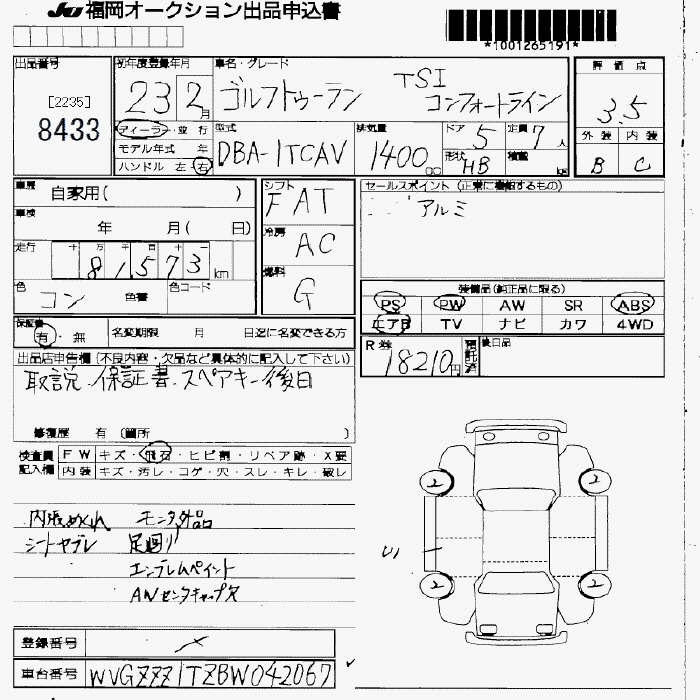 JU 福岡オークション出品申込書
*1001265191*
出品番号
[2235]
8433
初年度登録年月
23 2月
車名・グレード
ゴルフトゥーラン TSI コンフォートライン
評価点
3.5
外装 内装
B C
ディーラー・並行
モデル年式 年
ハンドル 左 右
型式
DBA-1TCAV
排気量
1400cc
ドア 5
形状 HB
定員 7人
積載 kg
車歴 自家用( )
車検 年 月( 日)
走行 十 万 千 百 十 一
81,573 km
色 コン 色替
色コード
シフト
FAT
冷房
AC
燃料
G
セールスポイント (正常に機能するもの)
アルミ
装備品(純正品に限る)
PS PW AW SR ABS
エアB TV ナビ カワ 4WD
保証書
有・無
名変期限 月 日迄に名変できる方
R券
18210円
預託済
後日品
出品店申告欄 (不良内容・欠品など具体的に記入して下さい)
取説.保証書.スペアキー後日
修復歴 有 (箇所 )
検査員記入欄
FW キズ・飛石・ヒビ割・リペア跡・X要
内装 キズ・汚レ・コゲ・穴・スレ・キレ・破レ
内張めくれ モニタ外品
シートヤブレ 足廻り
エンブレムペイント
ANセンタキャップ欠
2 2
U1
2 2
登録番号
車台番号 WVGZZZ1TZBW042067